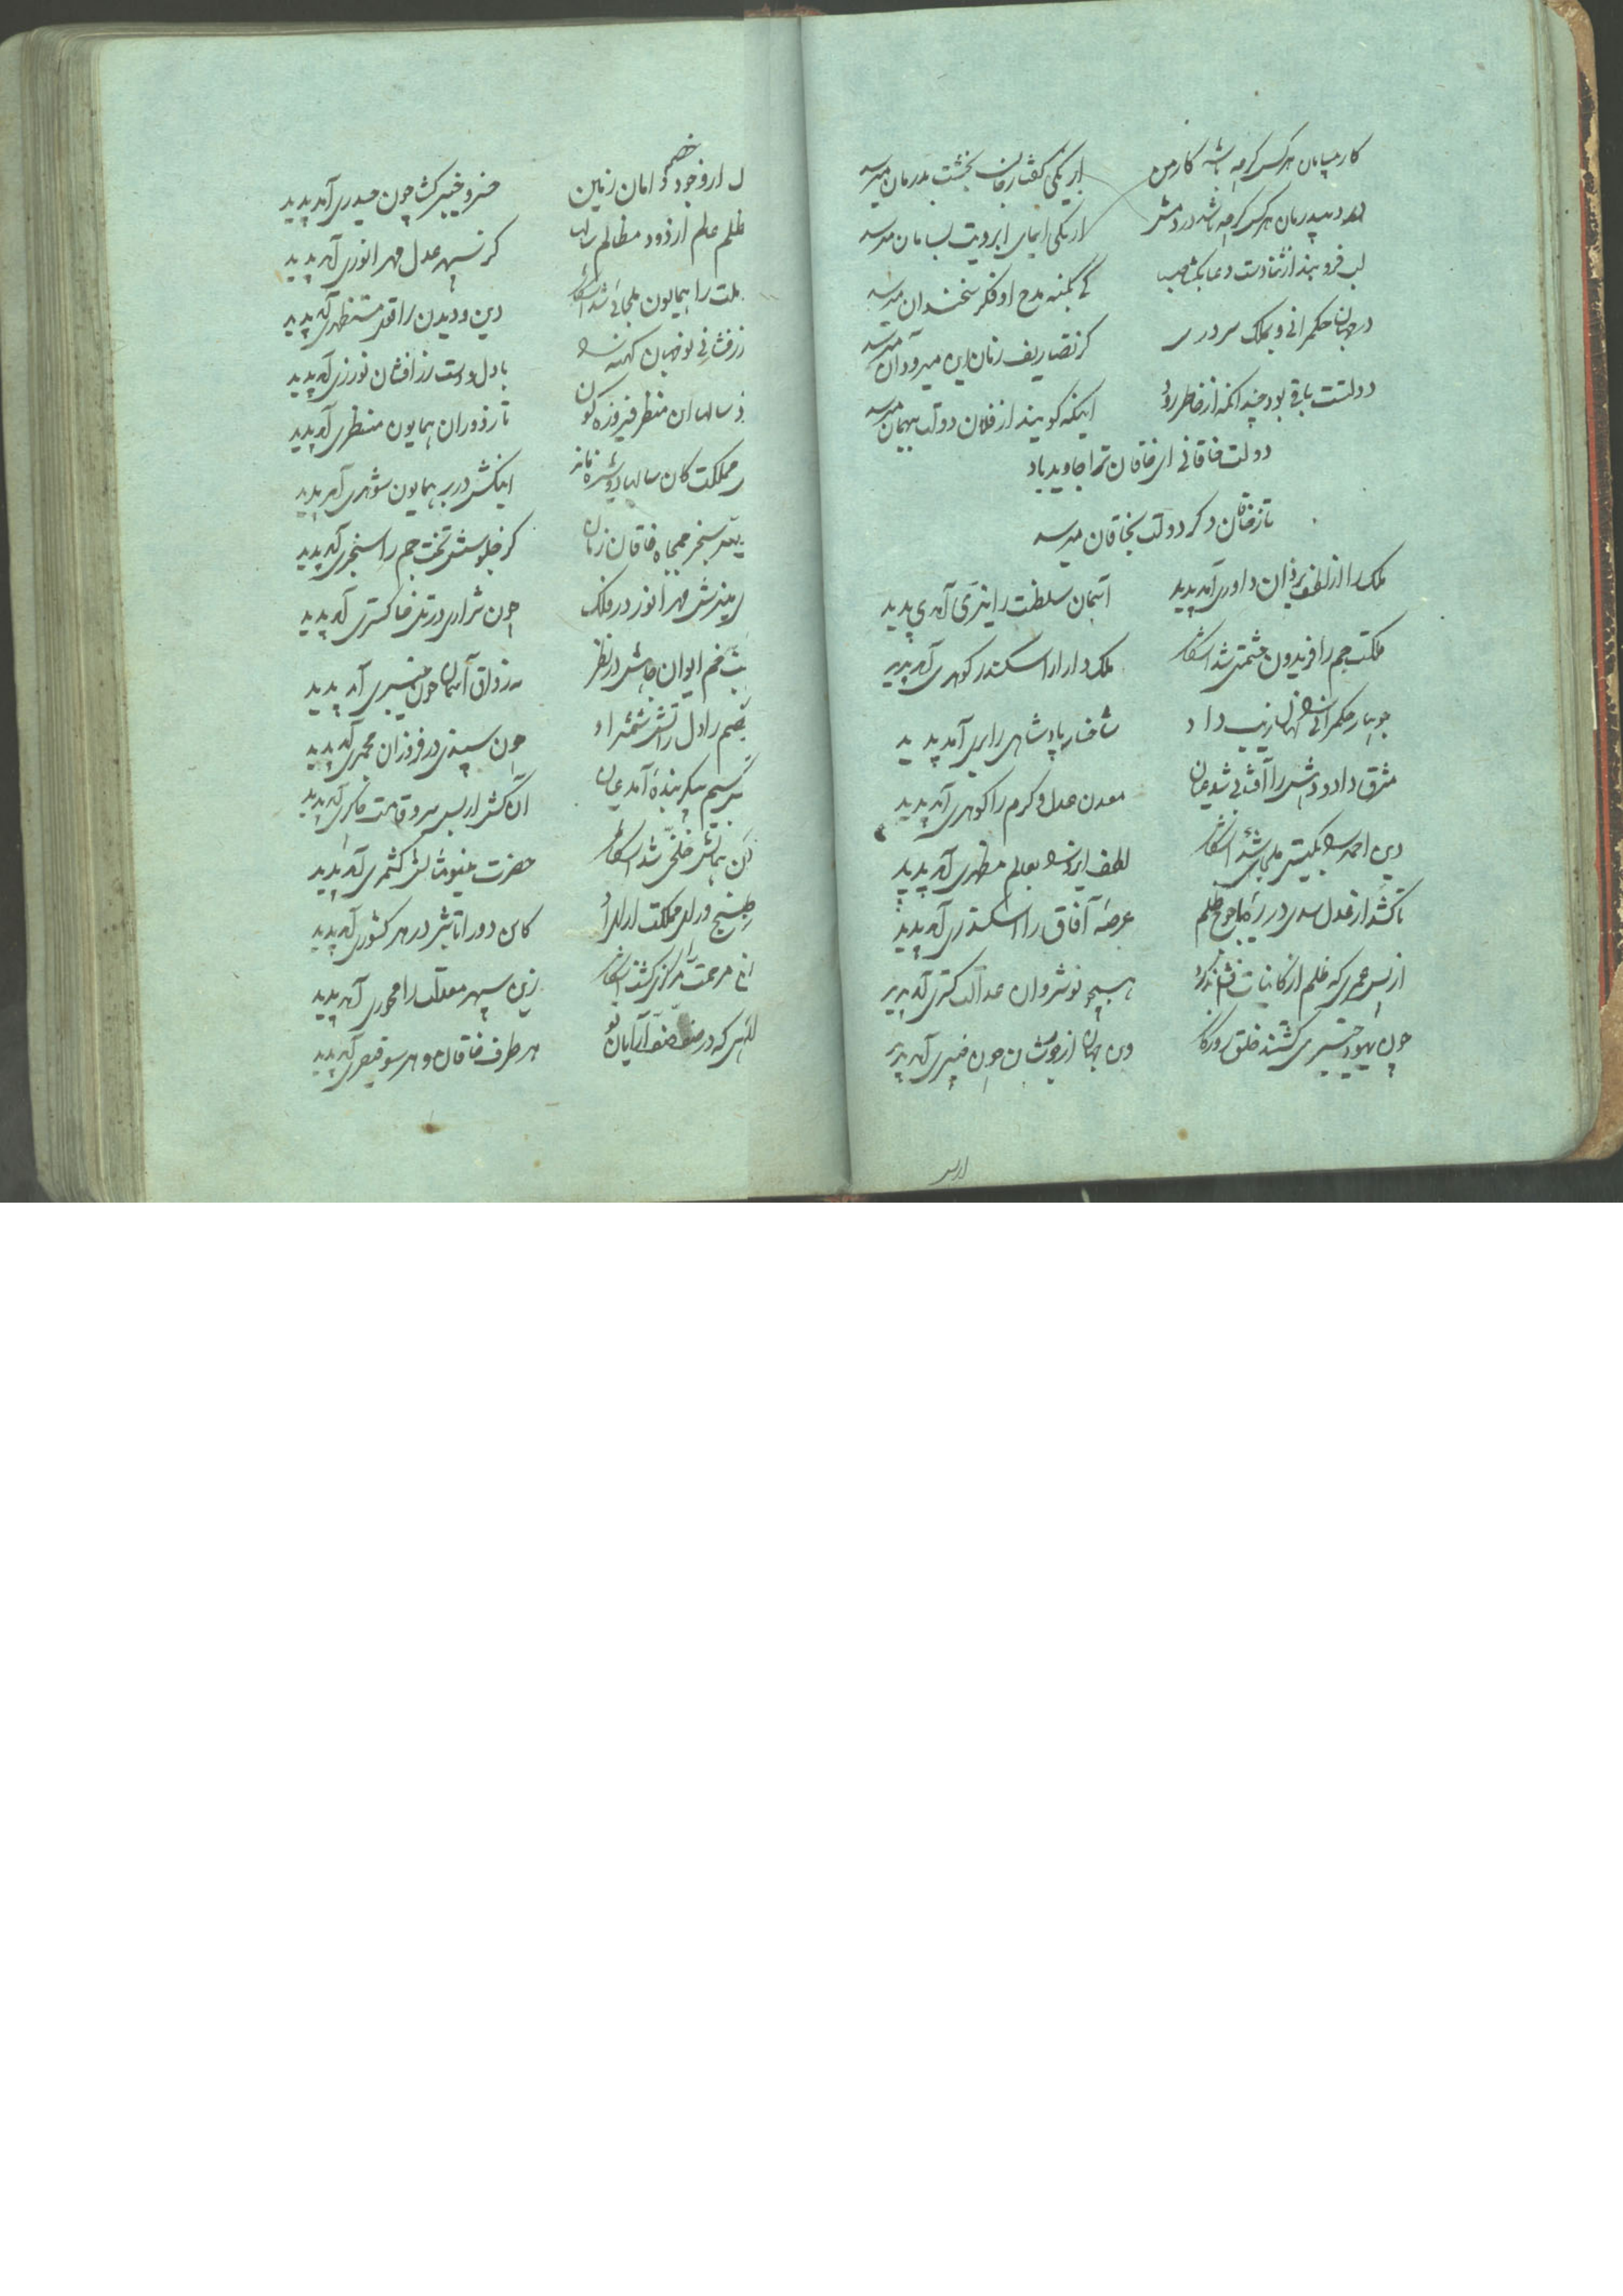 کار بیسامان هر کس کرچه باشد کار من از یکی گفتار جان بخشت بدرمان میرسد
درد بیدرمان هر کس کرچه باشد درد منش از یکی ایمای ابرویت بسامان میرسد
لب فرو بند از ثنا دست دعا بکشا حبیب کی بکنه مدح او فکر سخندان میرسد
در جهان حکمرانی و بملک سروری کز تصاریف زمان این میرود آن میرسد
دولتت باقی بود چندانکه از خاطر رود اینکه گویند از فلان دولت ببهمان میرسد
دولت خاقانی ای خاقان ترا جاوید باد
تا ز خاقان دکر دولت بخاقان میرسد
ملک را از لطف یزدان داوری آمد پدید آسمان سلطنت را نیّری آمد پدید
ملکت جم را فریدون حشمتی شد آشکار ملک دارا را سکندر گوهری آمد پدید
جویبار حکمرانی را نهالی زیب داد شاخسار پادشاهی را بری آمد پدید
مشرق داد و دهش را آفتابی شد عیان معدن عدل و کرم را گوهری آمد پدید
دین احمد را بگیتی ملجائی شد آشکار لطف ایزد را بعالم مظهری آمد پدید
تا کشد از عدل سدی در ره یاجوج ظلم عرصهٔ آفاق را اسکندری آمد پدید
از پس عمری که ظلم از کاینات همچو نوشروان عدالت گستری آمد پدید
چون یهود خیبری گشتند خلق روزگار وین جهان از جورشان چون خیبری آمد پدید
از وجود خصم او امان زمین خسرو خیبر گشا چون حیدری آمد پدید
ظلم عالم از دود مظالم سالها کز سپهر عدل مهر انوری آمد پدید
ملت را همایون ملجائی شد آشکار دین و دیدن را قوی مستظهری آمد پدید
زرفشانی نو جهان کهنه را با دل و دست زر افشان نوذری آمد پدید
سالها این منظر فیروزه گون تا ز دوران همایون منظری آمد پدید
مملکت کان سالها دوشیزه ماند اینکش در بر همایون شوهری آمد پدید
سنجر جمجاه خاقان زمان کز جلوسش تخت جم را سنجری آمد پدید
مهر انور در فلک چون شراری در تل خاکستری آمد پدید
خم ایوان جاهش در نظر نه رواق آسمان چون چنبری آمد پدید
خصم را دل ز آتش شمشیر او چون سپندی در فروزان مجمری آمد پدید
پیکر بنده آمد عیان آن کش از پس سرو قامت چاکری آمد پدید
خلّخی شد آشکار حضرت مینو مثالش کشمری آمد پدید
مملکت کاین دور اتابش در هر کشوری آمد پدید
مرحمت را مرکزی گشت آشکار زین سپهر معدلت را محوری آمد پدید
که در صف صف آرایان تو هر طرف خاقان و هر سو قیصری آمد پدید